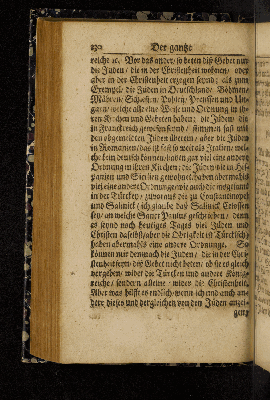 230 Der gantze
welche ꝛc. Vor das ander / so beten diß Gebet nur
die Juden / die in der Christenheit wohnen / oder
aber in der Christenheit erzogen seynd; als zum
Exempel / die Juden in Deutschlande / Böhmen /
Mähren / Schlesien / Pohlen / Preussen und Un-
garn / welche alle eine Weise und Ordnung in ih-
ren Kirchen und Gebeten haben; die Jüden / die
in Franckreich gewesen seynd / stimmen fast mit
den obgemeldten Jüden überein / aber die Jüden
in Romanien / das ist fast so weit als Italien / wel-
che kein deutsch können / haben gar viel eine andere
Ordnung in ihren Kirchen; die Jüden die in His-
panien und Sicilien gewohnet / haben abermahls
viel eine andere Ordnung / wie auch die insgesamt
in der Türckey / zuvoraus die zu Constantinopel
und Salinick / (ich glaube das Salinick Thessen
sey / an welche Sanct Paulus geschrieben / denn
es seynd noch heutiges Tages viel Jüden und
Christen daselbst / aber die Obrigkeit ist Türckisch)
haben abermahls eine andere Ordnunge. So
können nur demnach die Juden / die in der Chri-
stenheit seyn / diß Gebet nicht beten / ob sie es gleich
vorgeben / wider die Türcken und andere König-
reiche / sondern alleine / wider die Christenheit.
Aber was hilffts endlich / wenn ich und auch an-
dere dieses und dergleichen von den Jüden anzei-
gen /